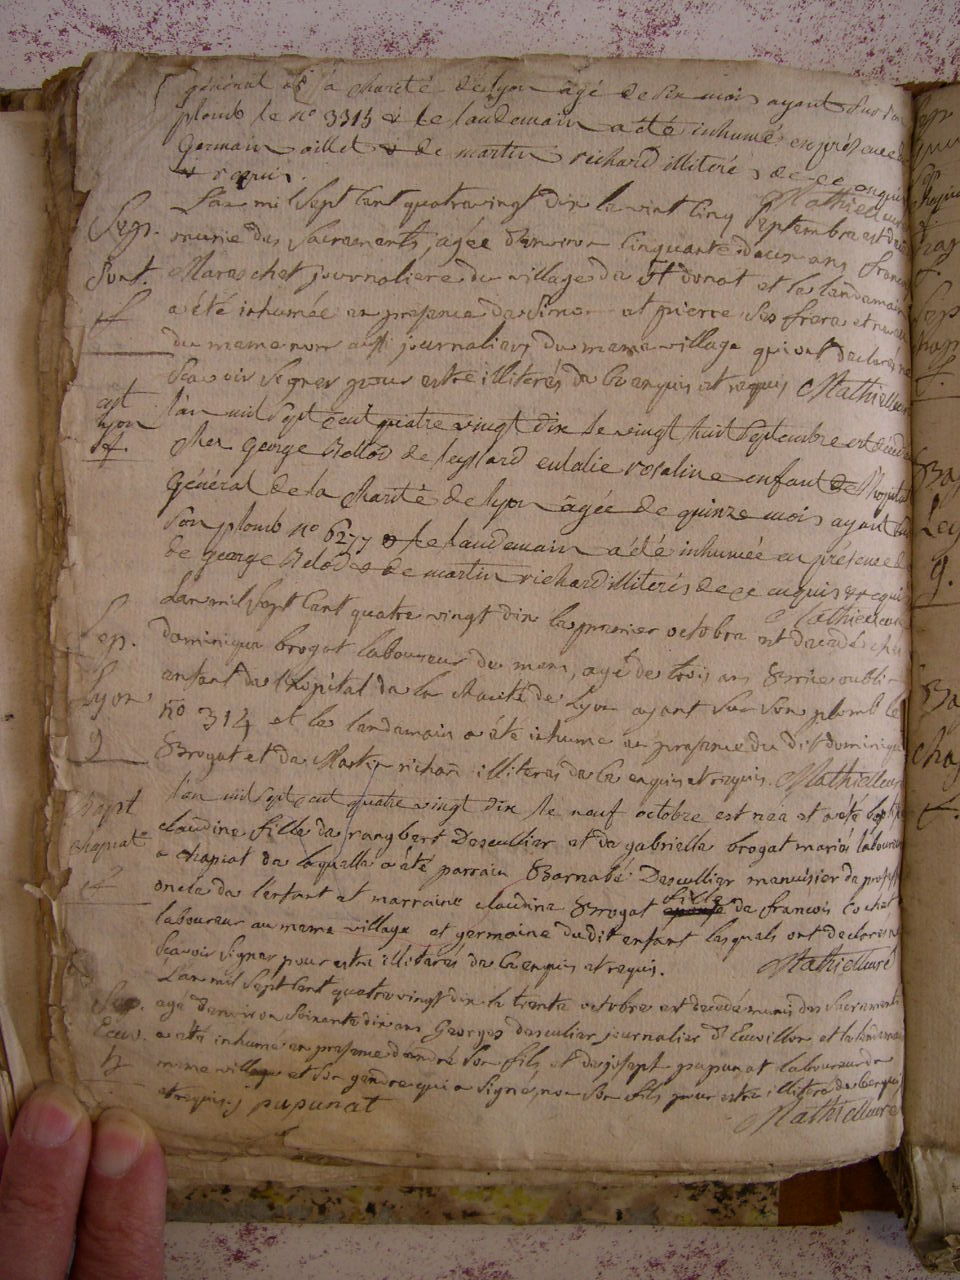 général de la charité de lyon âgé de six mois ayant sur son
plomb le n° 3315 & le landemain a été inhumé en présence de
Germain aillet & de martin richard illiterés de ce enquis
& requis. Mathieu curé
Sep. L'an mil sept cent quatrevingt dix le vint cinq septembre est
munie des sacrements, agée d'environ cinquante deux ans
Dont. Mareschet journaliere du village de St donat et le landemain
f a été inhumée en presence de simon et pierre ses frere et
du meme nom aussi journaliers du meme village qui ont declarés ne
scavoir signer pour estre illiterés de ce enquis et requis Mathieu curé
lyon l'an mil sept cent quatre vingt dix le vingt huit septembre est décédée
f. chez George Relod de leyssard eulalie rosaline enfant de l'hopital
Général de la charité de lyon âgée de quinze mois ayant sur
son plomb n° 6277 & le landemain a été inhumée en présence de
de george Relod & de martin richard illiterés de ce enquis & requis
Mathieu curé
Sep. L'an mil sept cent quatre vingt dix le premier octobre est decedé chez
dominique brogat laboureur du mens, agé de trois ans
Lyon enfant de l'hopital de la charité de Lyon ayant sur son plomb le
g no 314 et le landemain a été inhumé en presence du dit dominique
Brogat et de Martin richard illiterés de ce enquis et requis. Mathieu curé
bapt l'an mil sept cent quatre vingt dix le neuf octobre est née et a été baptisée
chapiat claudine fille de rangbert Descuillier et de gabrielle brogat mariés laboureurs
f a chapiat de laquelle a été parrain Barnabé Descuillier menuisier de profession
oncle de l'enfant et marraine claudine Brogat fille de francois cochet
laboureur au meme village et germaine du dit enfant lesquels ont declaré ne
scavoir signer pour estre illiterés de ce enquis et requis. Mathieu curé
Sep. L'an mil sept cent quatrevingt dix le trente octobre est decedé muni des sacrements
Ecuv. agé d'environ soixante dix ans Georges descuilier journalier d'Ecuvillon et le landemain
h a été inhumé en presence d'andré son fils et de joseph papunat laboureur du
meme village et son gendre qui a signé, non son fils pour estre illiteré de ce enquis
et requis. j papunat
Mathieu curé